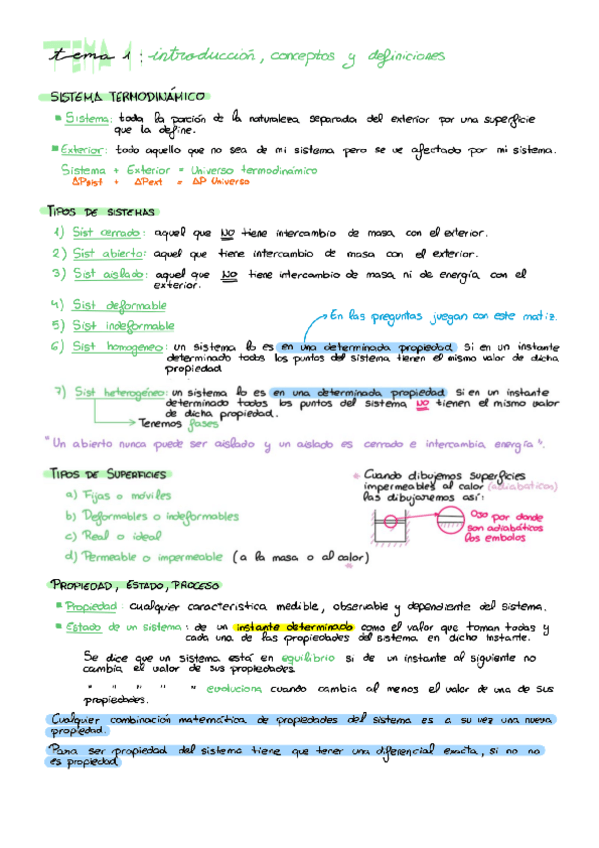 tema 1: introducción, conceptos y definiciones
SISTEMA TERMODINÁMICO
Sistema: toda la porción de la naturaleza separada del exterior por una superficie
que la define.
Exterior: todo aquello que no sea de mi sistema pero se ve afectado por mi sistema.
Sistema + Exterior = Universo termodinámico
ΔPsist + ΔPext = ΔP Universo
TIPOS DE SISTEMAS
1) Sist cerrado: aquel que NO tiene intercambio de masa con el exterior.
2) Sist abierto: aquel que tiene intercambio de masa con el exterior.
3) Sist aislado: aquel que NO tiene intercambio de masa ni de energía con el
exterior.
4) Sist deformable
5) Sist indeformable
En las preguntas juegan con este matiz.
6) Sist homogeneo: un sistema lo es en una determinada propiedad si en un instante
determinado todos los puntos del sistema tienen el mismo valor de dicha
propiedad
7) Sist heterogéneo: un sistema lo es en una determinada propiedad si en un instante
determinado todos los puntos del sistema NO tienen el mismo valor
de dicha propiedad.
Tenemos fases
"Un abierto nunca puede ser aislado y un aislado es cerrado e intercambia energía".
TIPOS DE SUPERFICIES
a) Fijas o móviles
b) Deformables o indeformables
c) Real o ideal
d) Permeable o impermeable (a la masa o al calor)
* Cuando dibujemos superficies
impermeables al calor (adiabáticos)
las dibujaremos así:
Ojo por donde
son adiabáticos
los embolos
PROPIEDAD, ESTADO, PROCESO
Propiedad: cualquier característica medible, observable y dependiente del sistema.
Estado de un sistema: de un instante determinado como el valor que toman todas y
cada una de las propiedades del sistema en dicho instante.
Se dice que un sistema está en equilibrio si de un instante al siguiente no
cambia el valor de sus propiedades
" " " " " evoluciona cuando cambia al menos el valor de una de sus
propiedades.
Cualquier combinación matemática de propiedades del sistema es a su vez una nueva
propiedad.
Para ser propiedad del sistema tiene que tener una diferencial exacta, si no no
es propiedad